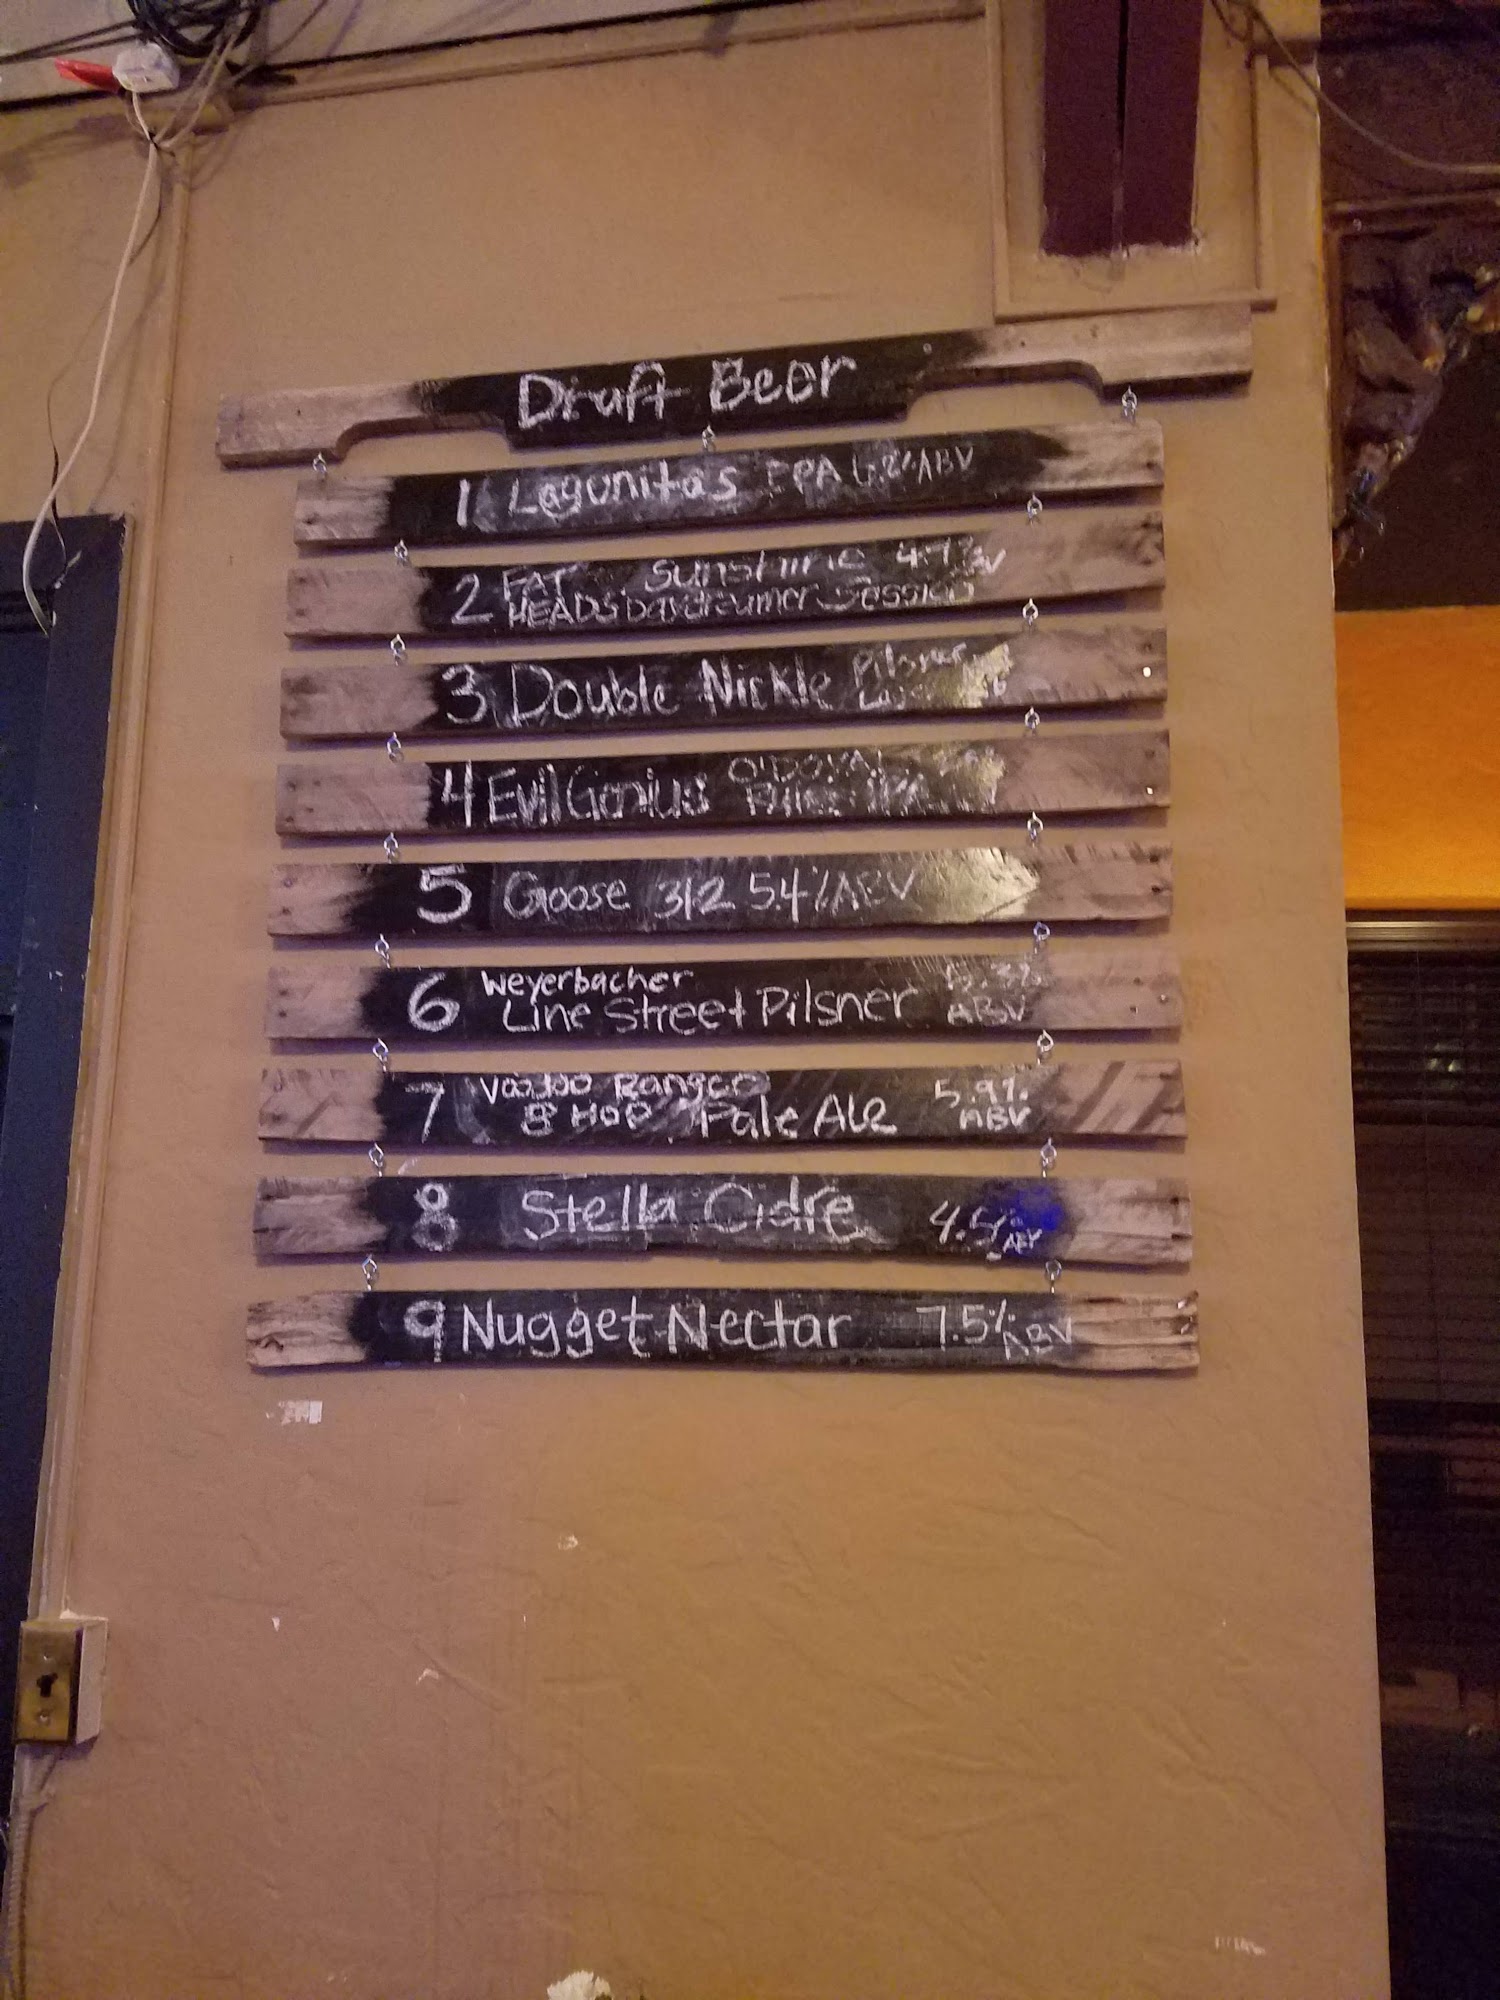 Draft Beer
1 Lagunitas IPA 6.2% ABV
2 FAT Sunshine 4.7% ABV
HEADS Daydreamer Session
3 Double Nickle Pilsner
Lager
4 Evil Genius O'DOYAL
RULES IPA
5 Goose 312 5.4% ABV
6 Weyerbacher
Line Street Pilsner 5.3% ABV
7 Voodoo Rangeo 5.9%
8 HOP Pale Ale ABV
8 Stella Cidre 4.5% ABV
9 Nugget Nectar 7.5% ABV